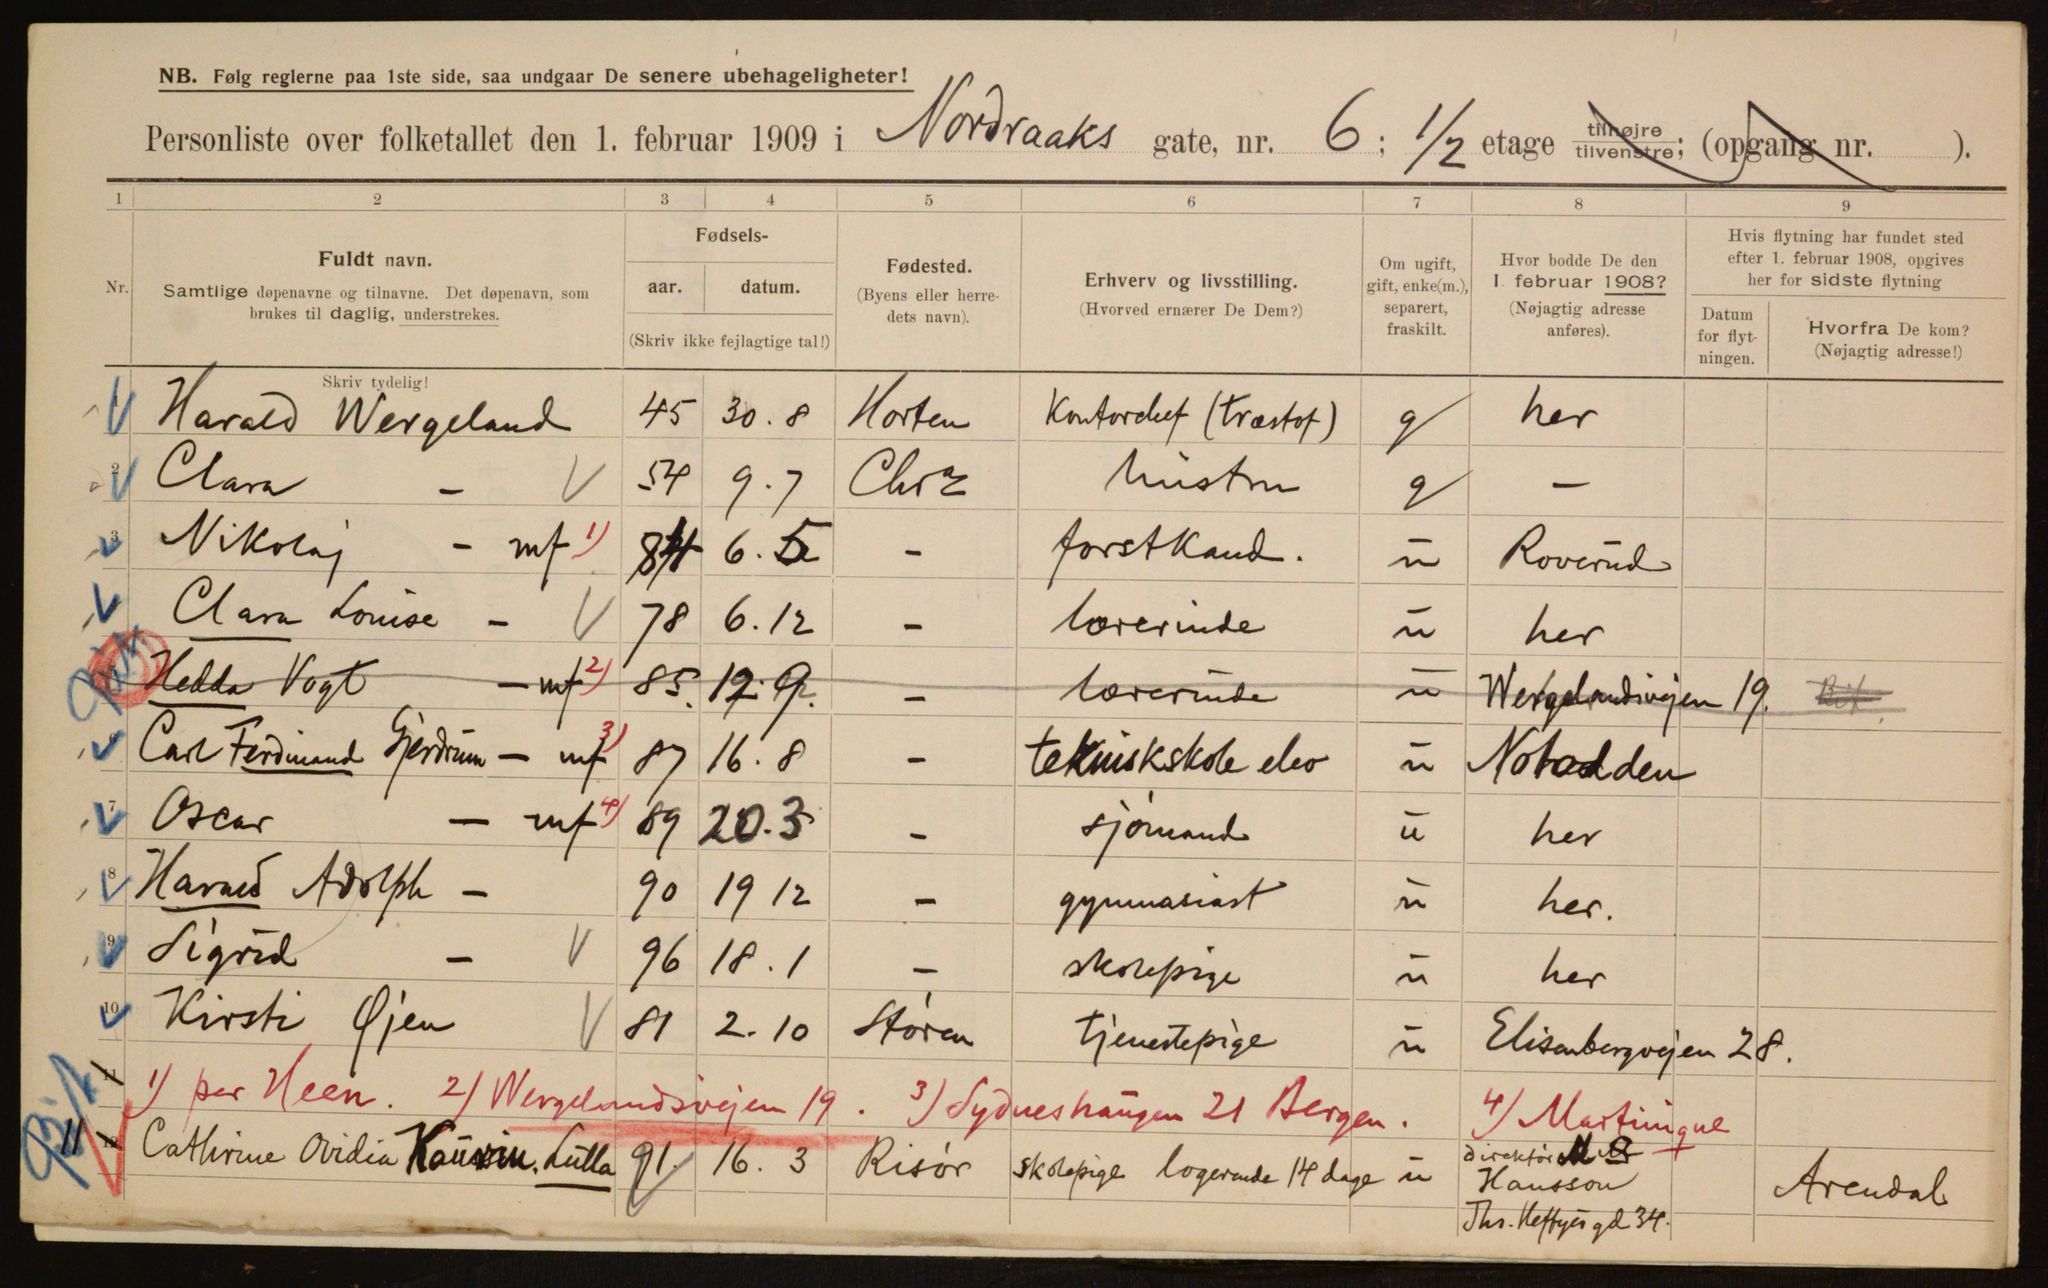 NB. Følg reglerne paa 1ste side, saa undgaar De senere ubehageligheter!
Personliste over folketallet den 1. februar 1909 i Nordraaks gate, nr. 6; 1/2 etage tilhøjre tilvenstre; (opgang nr. ).
1 2 3 4 5 6 7 8 9
Nr.
Fuldt navn.
Samtlige døpenavne og tilnavne. Det døpenavn, som
brukes til daglig, understrekes.
Fødsels-
aar. datum.
(Skriv ikke fejlagtige tal!)
Fødested.
(Byens eller herre-
dets navn).
Erhverv og livsstilling.
(Hvorved ernærer De Dem?)
Om ugift,
gift, enke(m.),
separert,
fraskilt.
Hvor bodde De den
1 februar 1908?
(Nøjagtig adresse
anføres).
Hvis flytning har fundet sted
efter 1. februar 1908, opgives
her for sidste flytning
Datum
for flyt-
ningen.
Hvorfra De kom?
(Nøjagtig adresse!)
Skriv tydelig!
1 Harald Wergeland 45 30.8 Horten Kontorchef (træstof) g her
2 Clara — 54 9.7 Chra hustru g —
3 Nikolaj — mf 1) 84 6.5 — forstkand. u Roverud
Clara Louise — 78 6.12 — lærerinde u her
Hedda Vogt — mf 2) 85. 12.9. — lærerinde u Wergelandsvejen 19.
6 Carl Ferdinand Gjerdrum — mf 3) 87 16.8 — tekniskskole elev u Notodden
7 Oscar — mf 4) 89 20.3 — sjømand u her
8 Harald Adolph — 90 19 12 — gymnasiast u her.
9 Sigrid — 96 18.1 — skolepige u her
10 Kirsti Øjen 81 2.10 Støren tjenestepige u Elisenbergvejen 28.
11 1) per Heen. 2) Wergelandsvejen 19. 3) Sydneshaugen 21 Bergen. 4) Martinique
11 12 Cathrine Ovidia Lulla 91. 16.3 Risør skolepige logerende 14 dage u direktør Hansson Arendal
Ths. Heftyes gd 34.